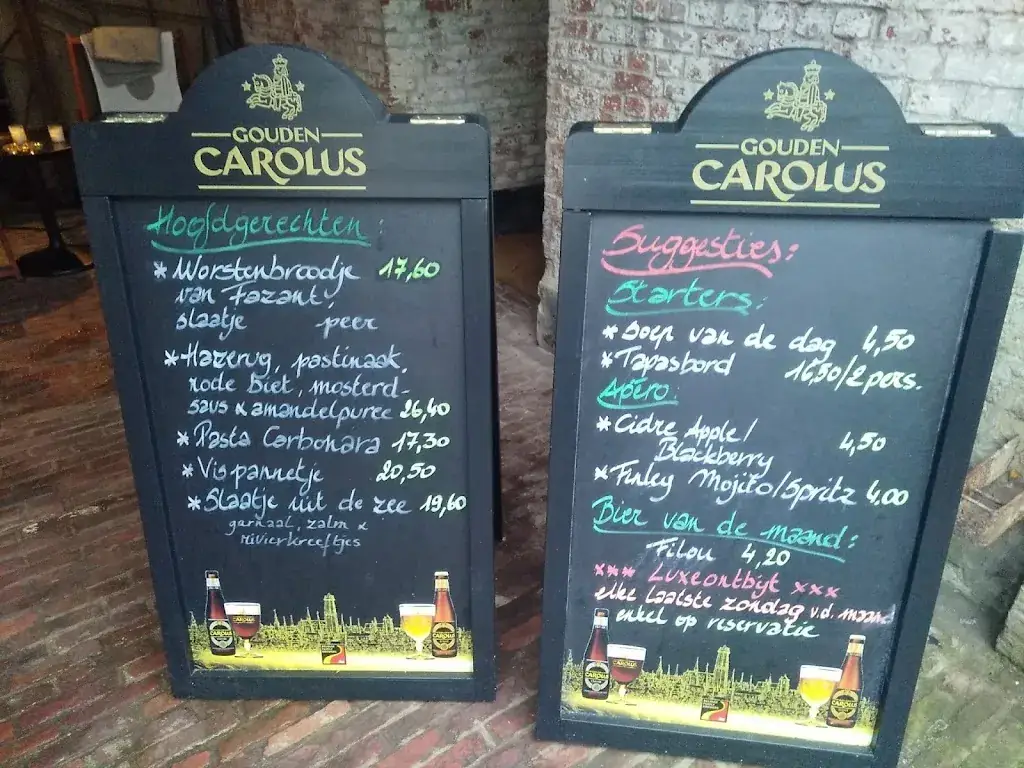 GOUDEN
CAROLUS
Hoofdgerechten:
* Worstenbroodje 17,60
van Fazant,
slaatje peer
* Hazerug, pastinaak,
rode biet, mosterd-
saus & amandelpuree 26,40
* Pasta Carbonara 17,30
* Vispannetje 20,50
* Slaatje uit de zee 19,60
garnaal, zalm &
rivierkreeftjes
CAROLUS
GOUDEN
CAROLUS
Suggesties:
Starters:
* Soep van de dag 4,50
* Tapasbord 16,50/2 pers.
Apero:
* Cidre Apple/
Blackberry 4,50
* Finley Mojito/Spritz 4,00
Bier van de maand:
Filou 4,20
xxx Luxeontbijt xxx
elke laatste zondag v.d. maand
enkel op reservatie
CAROLUS